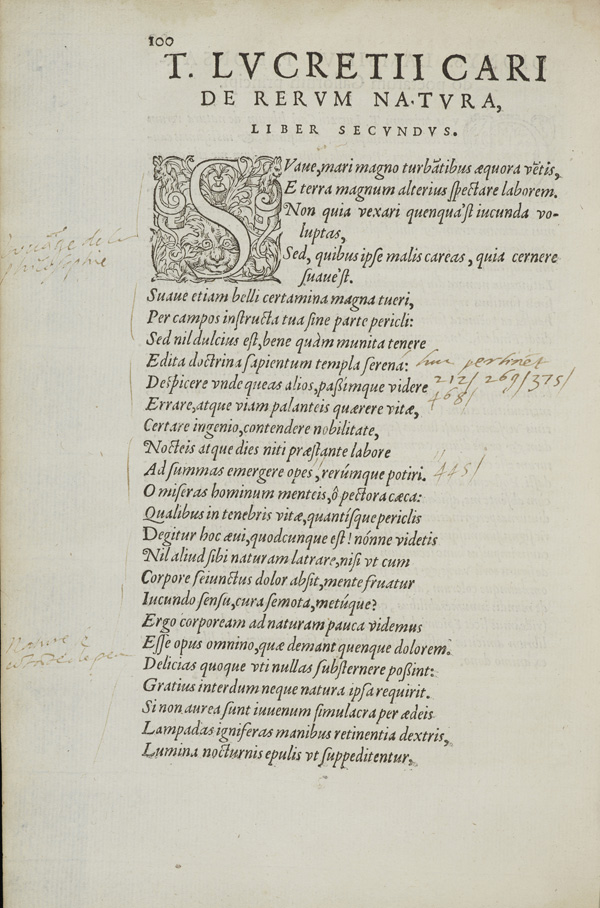 100
T. LVCRETII CARI
DE RERVM NA·TVRA,
LIBER SECVNDVS.
SVaue, mari magno turbātibus æquora vētis,
E terra magnum alterius ſpectare laborem.
Non quia vexari quenquā'ſt iucunda vo-
luptas,
Sed, quibus ipſe malis careas, quia cernere
ſuaue'ſt.
Suaue etiam belli certamina magna tueri,
Per campos inſtructa tua ſine parte pericli:
Sed nil dulcius eſt, bene quàm munita tenere
Edita doctrina ſapientum templa ſerena:
huc pertinēt
Deſpicere vnde queas alios, paßimque videre
212/ 269/375/
Errare, atque viam palanteis quærere vitæ,
468/
Certare ingenio, contendere nobilitate,
Nocteis atque dies niti præſtante labore
Ad ſummas emergere opes, rerúmque potiri.
445/
O miſeras hominum menteis, ô pectora cæca:
Qualibus in tenebris vitæ, quantíſque periclis
Degitur hoc æui, quodcunque eſt! nónne videtis
Nil aliud ſibi naturam latrare, niſi vt cum
Corpore ſeiunctus dolor abſit, mente fruatur
Iucundo ſenſu, cura ſemota, metúque?
Ergo corpoream ad naturam pauca videmus
Eſſe opus omnino, quæ demant quenque dolorem.
Delicias quoque vti nullas ſubſternere poßint:
Gratius interdum neque natura ipſa requirit.
Si non aurea ſunt iuuenum ſimulacra per ædeis
Lampadas igniferas manibus retinentia dextris,
Lumina nocturnis epulis vt ſuppeditentur,
de la
philosophie
Nature